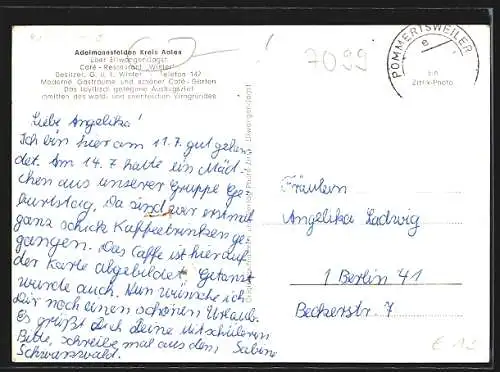 Adelmannsfelden Kreis Aalen
über Ellwangen/Jagst
Café - Restaurant „Winter"
Besitzer: G. u. I. Winter · Telefon 142
Moderne Gasträume und schöner Café-Garten
Das idyllisch gelegene Ausflugsziel
inmitten des wald- und seenreichen Virngrundes
7099
POMMERTSWEILER
e
Ein
Zirlik-Photo
Liebe Angelika!
Ich bin hier am 11.7. gut gelan
det. Am 14.7 hatte ein Mäd
chen aus unserer Gruppe Ge-
burtstag. Da sind wir erstmal
ganz schick Kaffeetrinken ge-
gangen. Das Caffe ist hier auf
der Karte abgebildet. Getanzt
wurde auch. Nun wünsche ich
Dir noch einen schönen Urlaub.
Es grüßt dich deine Mitschülerin
Bitte, schreibe mal aus dem, Sabine
Schwarzwald.
Fräulein
Angelika Ladwig
1 Berlin 41
Beckerstr. 7